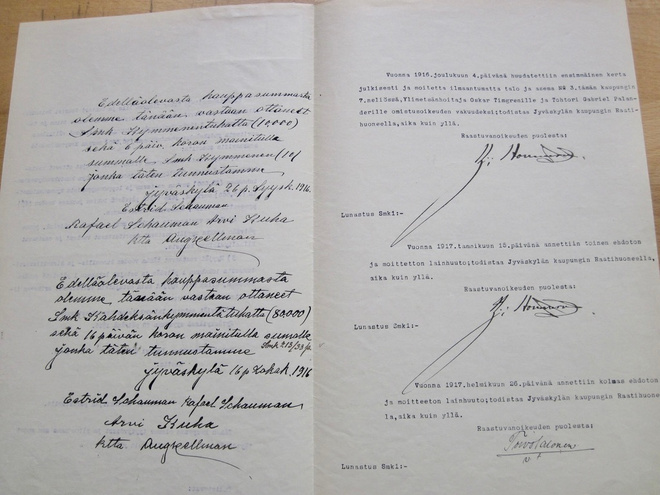 Edelläolevasta kauppasummasta
olemme tänään vastaan ottaneet
Smk Kymmenentuhatta (10,000)
sekä 6 päiv. koron mainitulla
summalle Smk Kymmenen (10)
jonka täten tunnustamme
Jyväskylä, 26 p. Syysk. 1916.
Estrid Schauman
Rafael Schauman Arvi Kuha
ktta
Edelläolevasta kauppasummasta
olemme tänään vastaan ottaneet
Smk Kahdeksänkymmentätuhatta (80000)
sekä 16 päivän koron mainitulle sumalle
Smk 213/33 p.
jonka täten tunnustamme
Jyväskylä 16 p Lokak. 1916
Estrid Schauman Rafael Schauman
Arvi Kuha
ktta
Vuonna 1916. joulukuun 4. päivänä kuulutettiin ensimäinen kerta
julkisesti ja moitetta ilmaantumatta talo ja asema SW 3. tämän kaupungin
7.nellössä, Ylimetsänhoitaja Oskar Timgrenille ja Tohtori Gabriel Palan-
derille omistusoikeuden vakuudeksi tuttiin Jyväskylän kaupungin Raati-
huoneella, aika kuin yllä.
Raastuvanoikeuden puolesta:
Lunastus Smk1:-
Vuonna 1917. tammikuun 15. päivänä annettiin toinen esdoton
ja moitteeton lainhuutotodistaa Jyväskylän kaupungin Raatihuoneella,
aika kuin yllä.
Raastuvanoikeuden puolesta:
Lunastus Smk1:-
Vuonna 1917. helmikuun 26. päivänä annettiin kolmas esdoton
ja moitteeton lainhuutotodistaa Jyväskylän kaupungin Raatihuonee-
lla, aika kuin yllä.
Raastuvanoikeuden puolesta:
Toivo Salonen
Lunastus Smk1:-